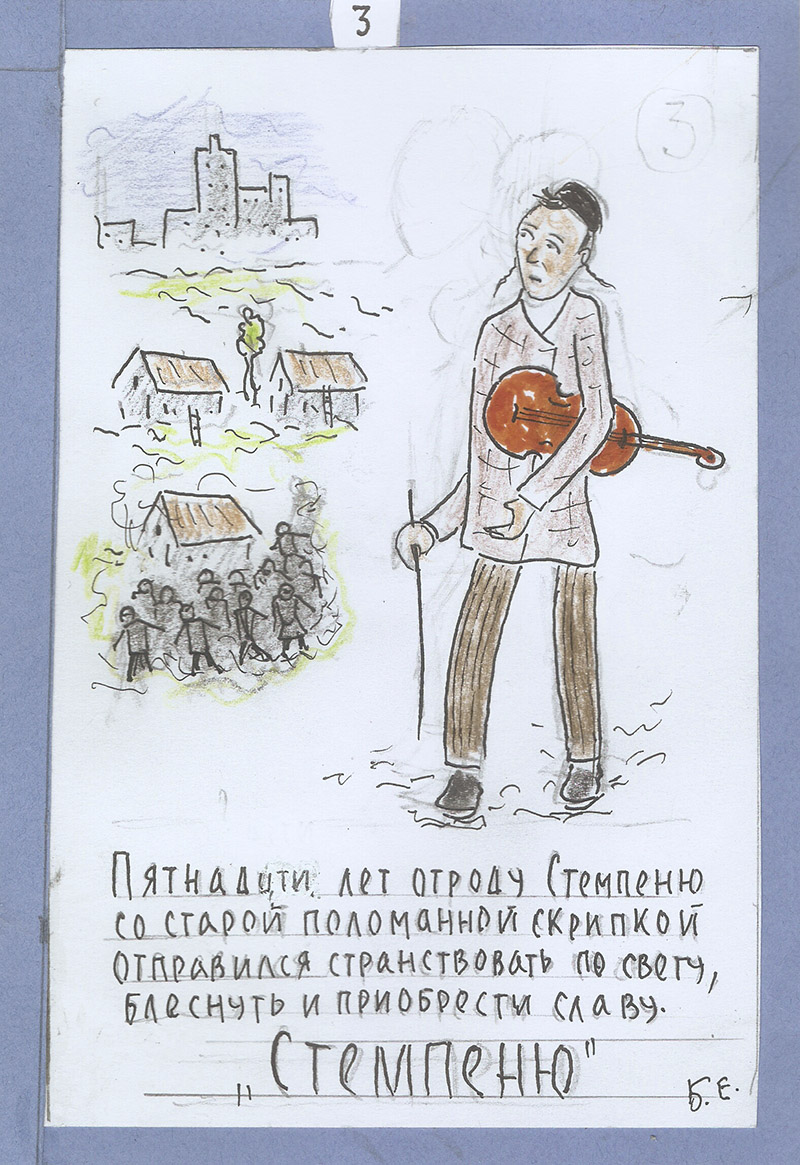 3
3
Пятнадцти лет отроду Стемпеню
со старой поломанной скрипкой
отправился странствовать по свету,
блеснуть и приобрести славу.
„Стемпеню"
Б. Е.